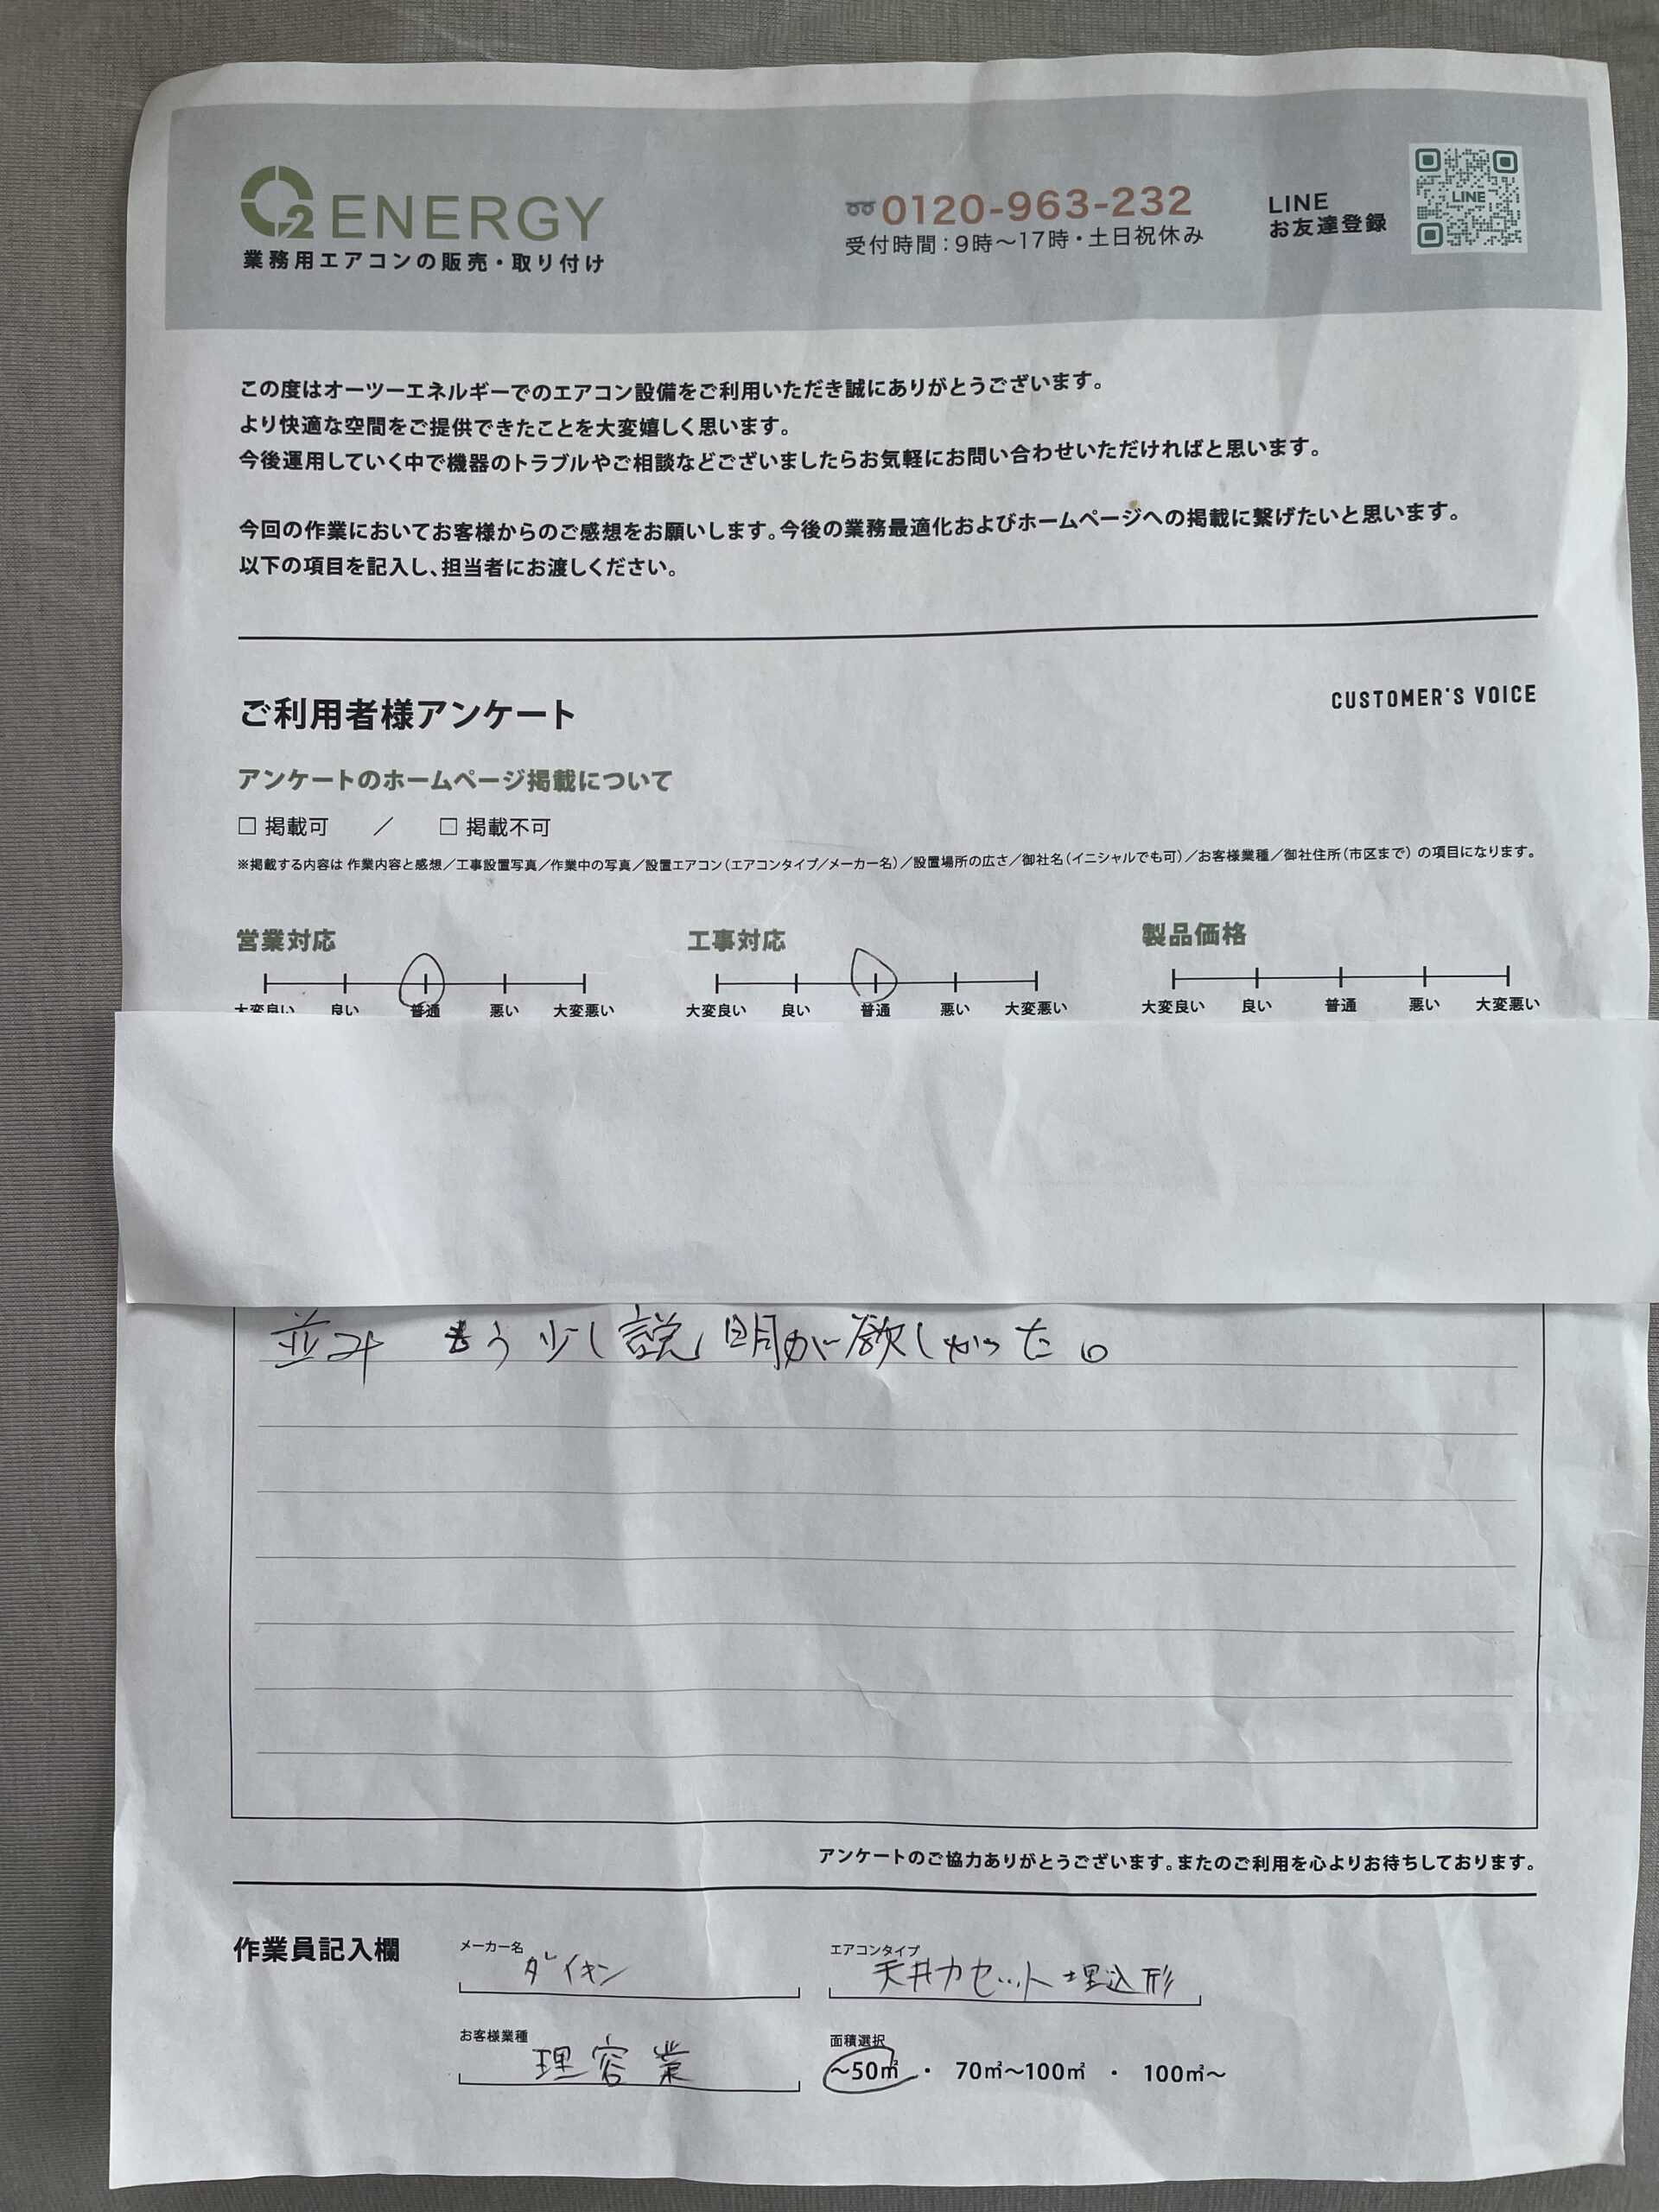 O2 ENERGY
業務用エアコンの販売・取り付け
0120-963-232
受付時間：9時〜17時・土日祝休み
LINE
お友達登録
LINE
この度はオーツーエネルギーでのエアコン設備をご利用いただき誠にありがとうございます。
より快適な空間をご提供できたことを大変嬉しく思います。
今後運用していく中で機器のトラブルやご相談などございましたらお気軽にお問い合わせいただければと思います。
今回の作業においてお客様からのご感想をお願いします。今後の業務最適化およびホームページへの掲載に繋げたいと思います。
以下の項目を記入し、担当者にお渡しください。
ご利用者様アンケート
CUSTOMER'S VOICE
アンケートのホームページ掲載について
□ 掲載可 ／ □ 掲載不可
※掲載する内容は 作業内容と感想／工事設置写真／作業中の写真／設置エアコン（エアコンタイプ／メーカー名）／設置場所の広さ／御社名（イニシャルでも可）／お客様業種／御社住所（市区まで）の項目になります。
営業対応 工事対応 製品価格
大変良い 良い 普通 悪い 大変悪い 大変良い 良い 普通 悪い 大変悪い 大変良い 良い 普通 悪い 大変悪い
並み もう少し説明が欲しかった。
アンケートのご協力ありがとうございます。またのご利用を心よりお待ちしております。
作業員記入欄
メーカー名 ダイキン
エアコンタイプ 天井カセット埋込形
お客様業種 理容業
面積選択
〜50㎡ ・ 70㎡〜100㎡ ・ 100㎡〜